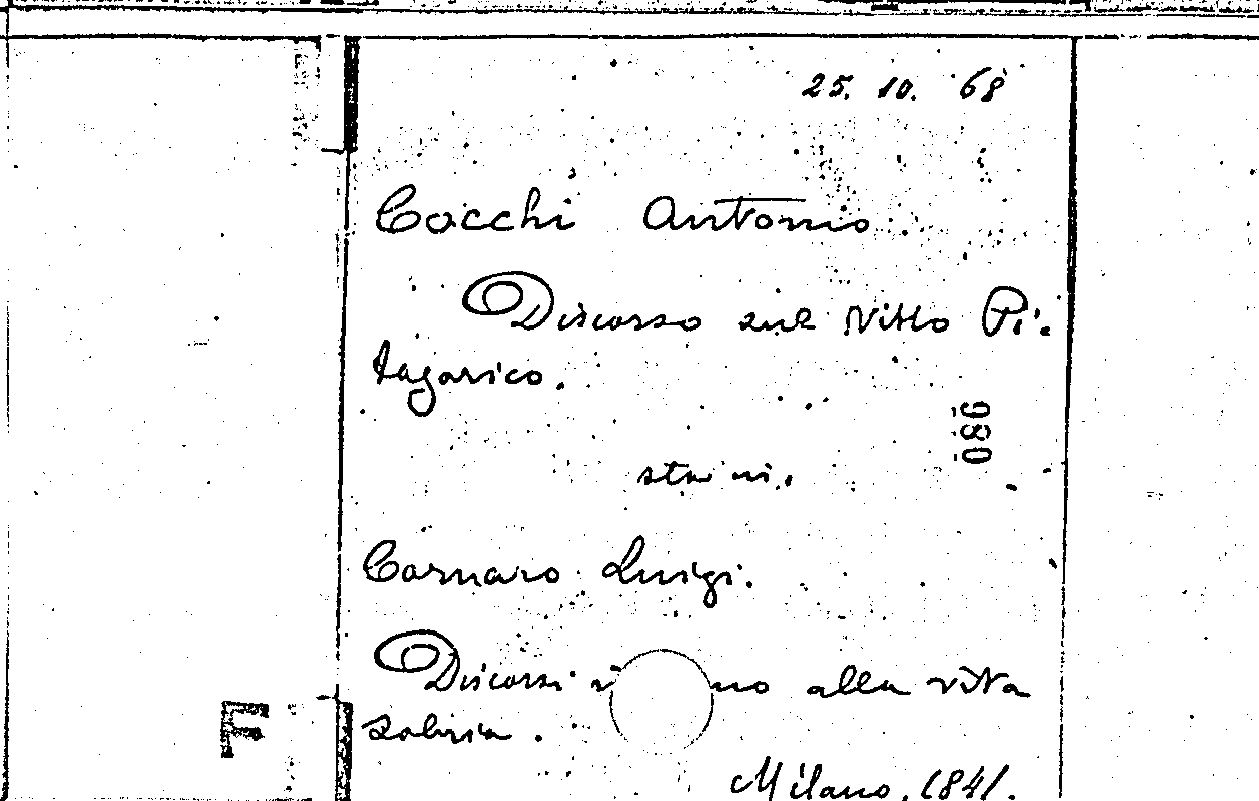 25. 10. 68
Cocchi Antonio
Discorso sul Vitto Pi-
tagorico.
086
Cornaro Luigi.
Discorsi alla vita
sobria.
F
Milano, 1841.